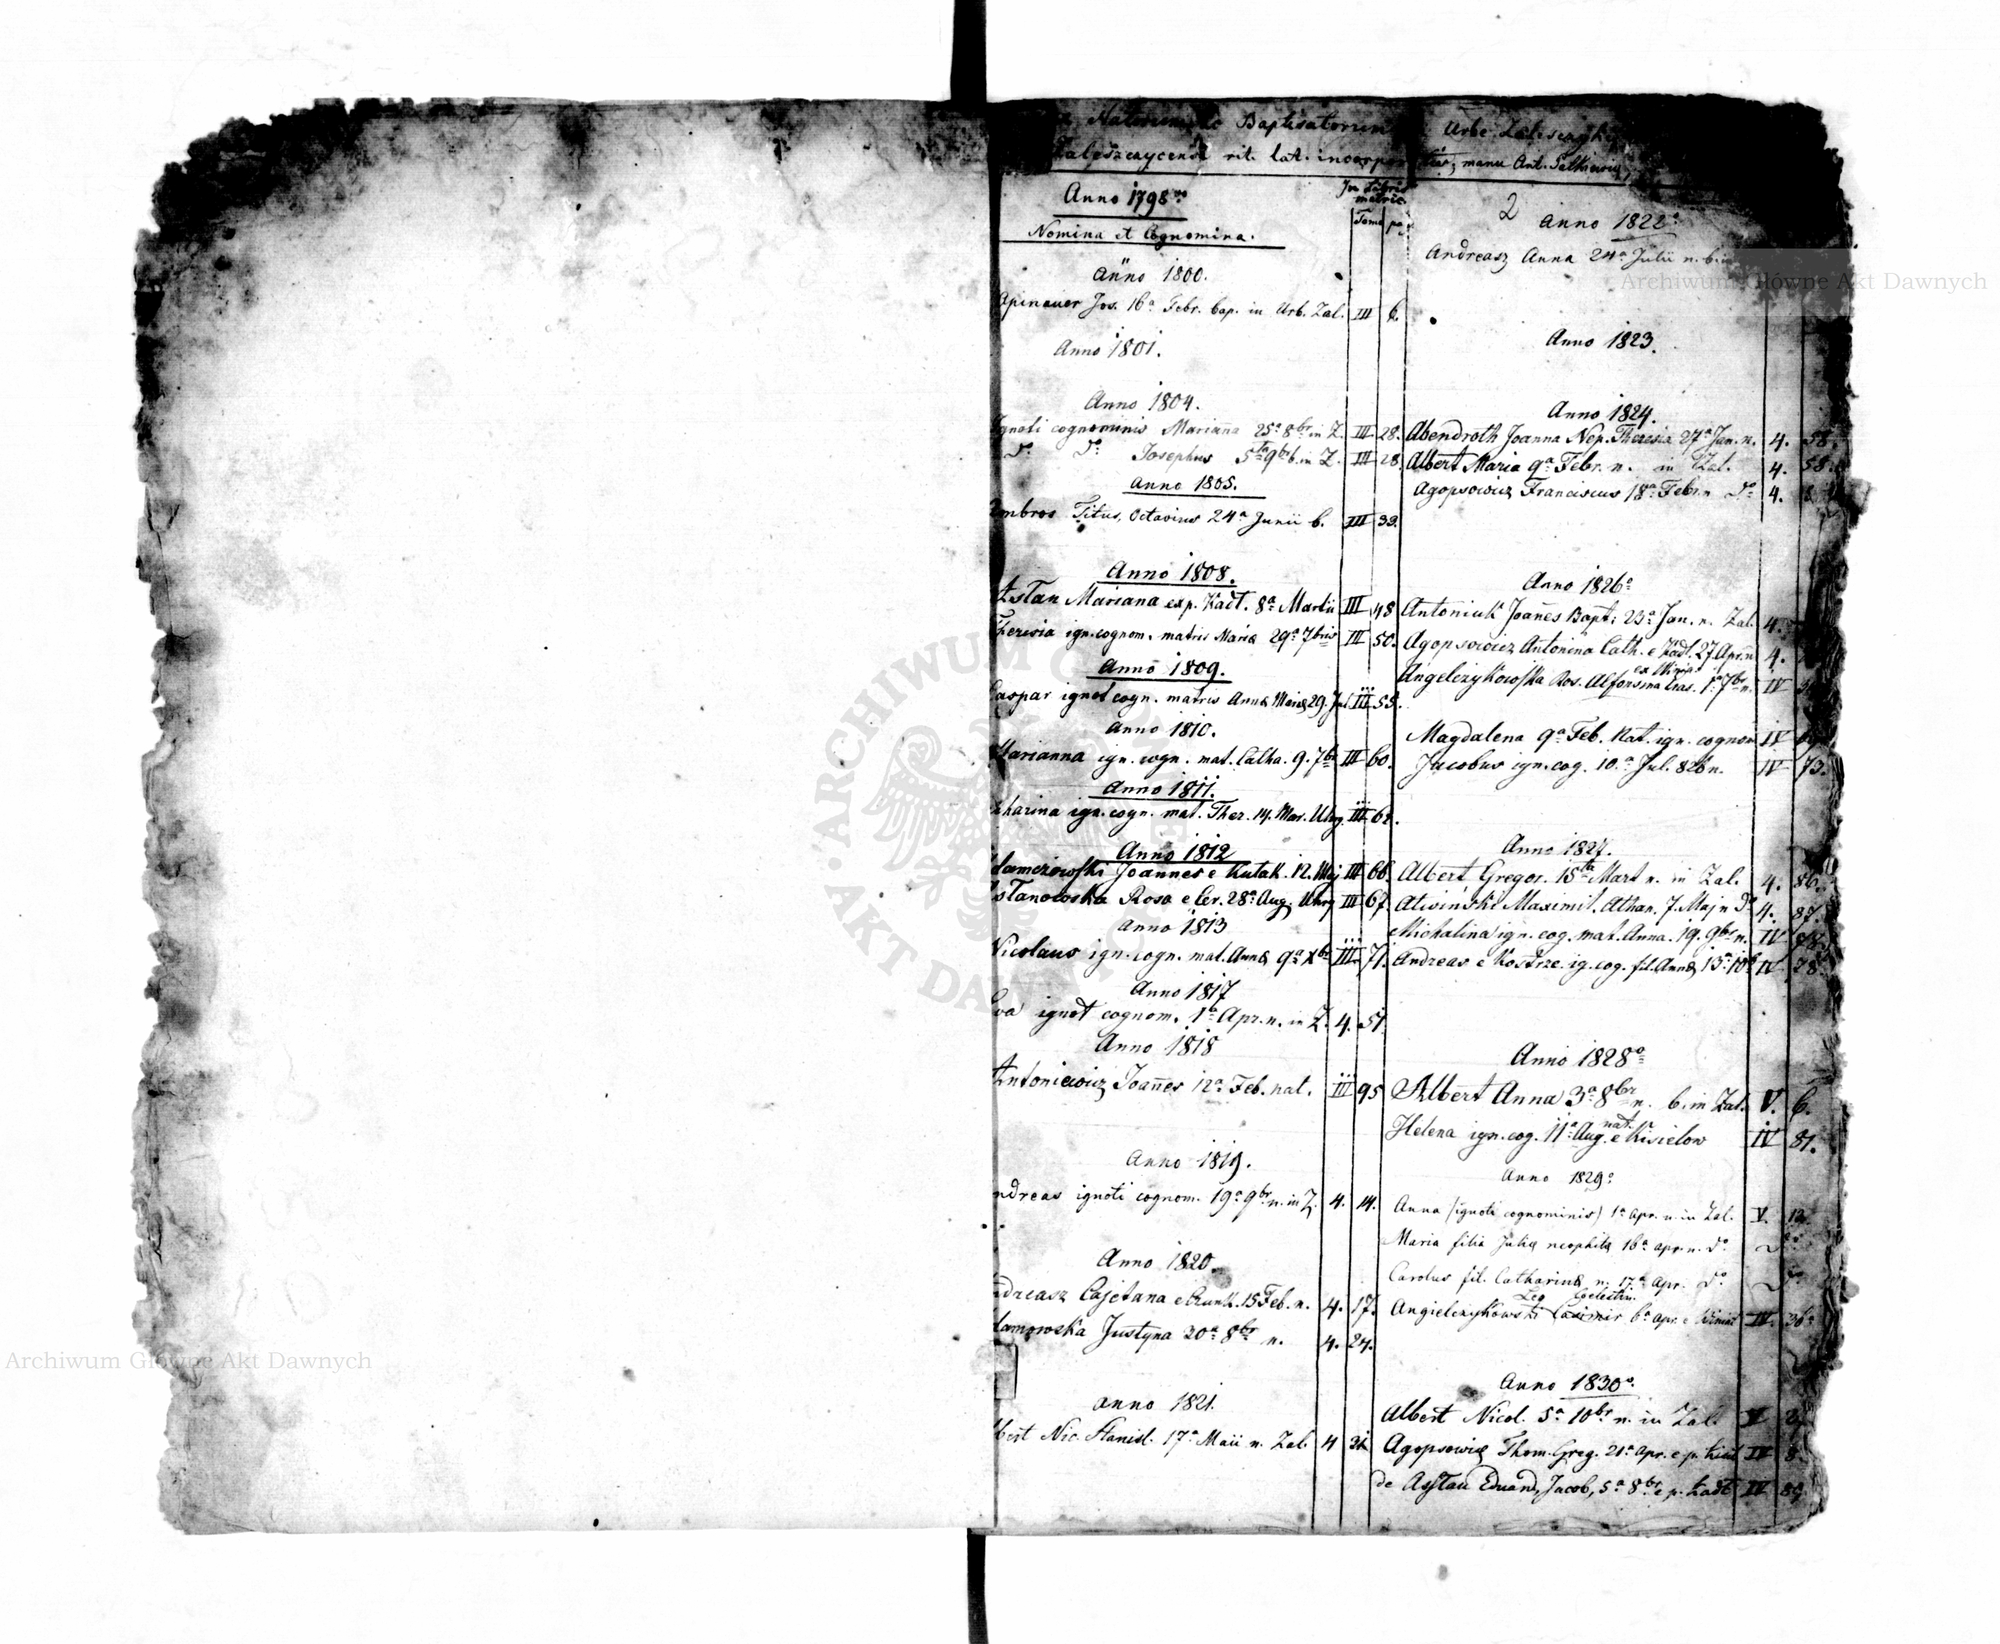 Natorum et Baptisatorum Urbe Zaleszczyki
Zaleszczycensi rit. lat. incorporatis, manu Ant.
Anno 1798vo
In Libris
metric.
Nomina et Cognomina.
Tomo pag
Anno 1800.
Jos. 16a Febr. bap. in Urb. Zal. III 6.
Anno 1801.
Anno 1804.
Ignoti cognominis Marianna 25a 8br in Z. III 28.
do do Josephus 5ta 9br b. in Z. III 28.
Anno 1805.
Ambros Titus, Octavius 24a Junii b. III 39.
Anno 1808.
Astan Mariana ex p. Kadł. 8a Martii III 48
Theresia ign. cognom. matris Mariæ 29a 7bris III 50.
Anno 1809.
Caspar ignot cogn. matris Annæ Mariæ 29. Jul. III 55.
Anno 1810.
Marianna ign. cogn. mat. Catha. 9. 7br III 60.
Anno 1811.
Catharina ign. cogn. mat. Ther. 14. Mar. Uhry. III 62.
Anno 1812
Adamczowski Joannes e Kułak. 12. Maj III 66.
Astanowska Rosa e Cer. 28a Aug. Uhry III 67.
Anno 1813
Nicolaus ign. cogn. mat. Annæ 9a Xbr III 71.
Anno 1817
Eva ignot cognom. 1a Apr. n. in Z. 4. 51.
Anno 1818
Antoniewicz Joannes 12a Feb. nat. III 95
Anno 1819.
Andreas ignoti cognom. 19a 9br n. in Z. 4. 14.
Anno 1820.
Andreasz Cajetana e 15 Feb. n. 4. 17.
Adamowska Justyna 30a 8br n. 4. 24.
Anno 1821.
Albert Nic. Stanisl. 17a Maii n. Zal. 4 31.
2 Anno 1822o
Andreasz Anna 24a Julii n. b. in
Anno 1823.
Anno 1824.
Abendroth Joanna Nep. Theresia 27a Jan. n. 4. 58.
Albert Maria 9a Febr. n. in Zal. 4. 58.
Agopsowicz Franciscus 18a Febr. n do 4.
Anno 1826o
Antoniuk Joañes Bapt: 23a Jan. n. Zal. 4.
Agopsowicz Antonina Cath. e Kadł. 27 Apr. n 4.
Angelczykowska Ros. Alfonsina Cas. 1a 7br n. IV
Magdalena 9a Feb. Nat. ign. cognom IV
Jacobus ign. cog. 10a Jul. 826 n. IV 73.
Anno 1827.
Albert Gregor. 15ta Mart n. in Zal. 4. 86.
Ativinski Maximil. Athan. 7. Maj n do 4. 87.
Michalina ign. cog. mat. Anna. 19. 9br n. IV 78.
Andreas e Kostrze. ig. cog. fil. Annæ, 13a 10b IV 78
Anno 1828o
Albert Anna 3a 8br n. b. in Zal. V. 6.
Helena ign. cog. 11a Aug. nat. e Kisielow IV 81.
Anno 1829o
Anna (ignoti cognominis) 1a Apr. n. in Zal. V. 12.
Maria filia Juliæ neophitæ 16a apr. n. do do
Carolus fil. Catharinæ n. 17a Apr. do do
Leo Celestin.
Angielczykowski Casimir 6a apr. e IV. 36
Anno 1830o
Albert Nicol. 5a 10br n. in Zal. V
Agopsowicz Thom. Greg. 21a apr. e p. IV 8
de Asstan Eduard, Jacob, 5a 8br e p. Kadł IV 89
Archiwum Główne Akt Dawnych
Archiwum Główne Akt Dawnych
ARCHIWUM GŁÓWNE AKT DAWNYCH